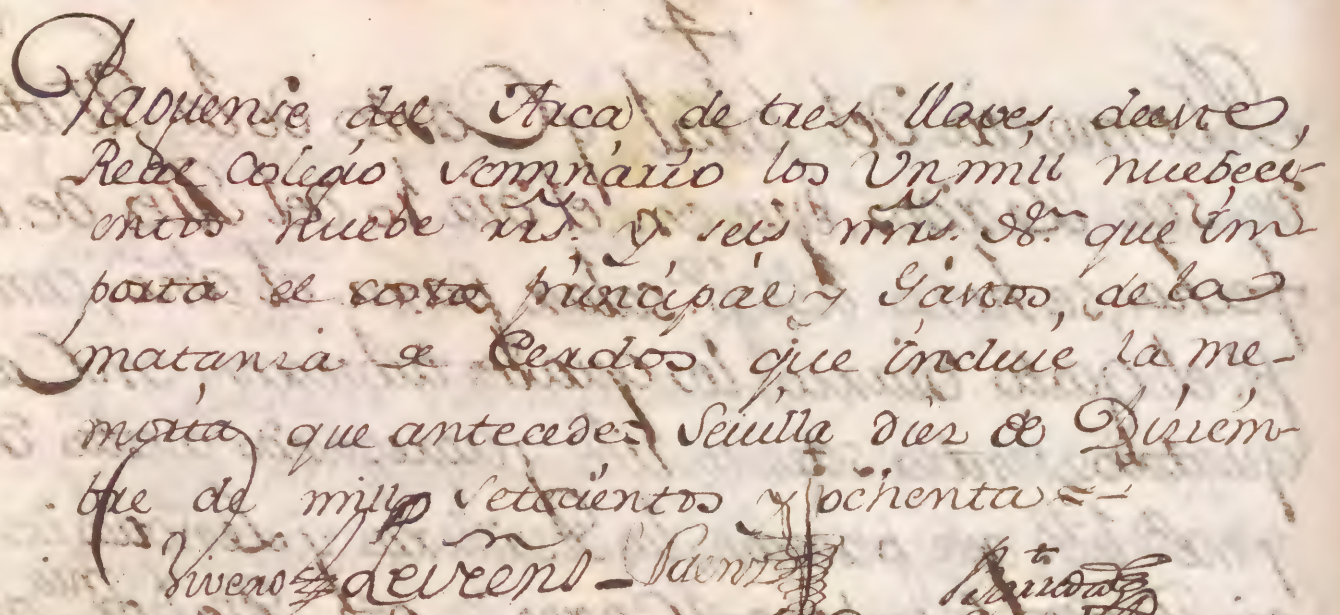 Paguense del Arca de tres llaves deeste,
Real Colegio Seminario los Un mill nuebeci-
entos nuebe rrs. y seis mrs. Vn. que im-
porta el costo principal y Gastos, de la
matanza de Cerdos que incluie la me-
moria que antecede. Sevilla diez de Diziem-
bre de mill setecientos y ochenta =
Saenz